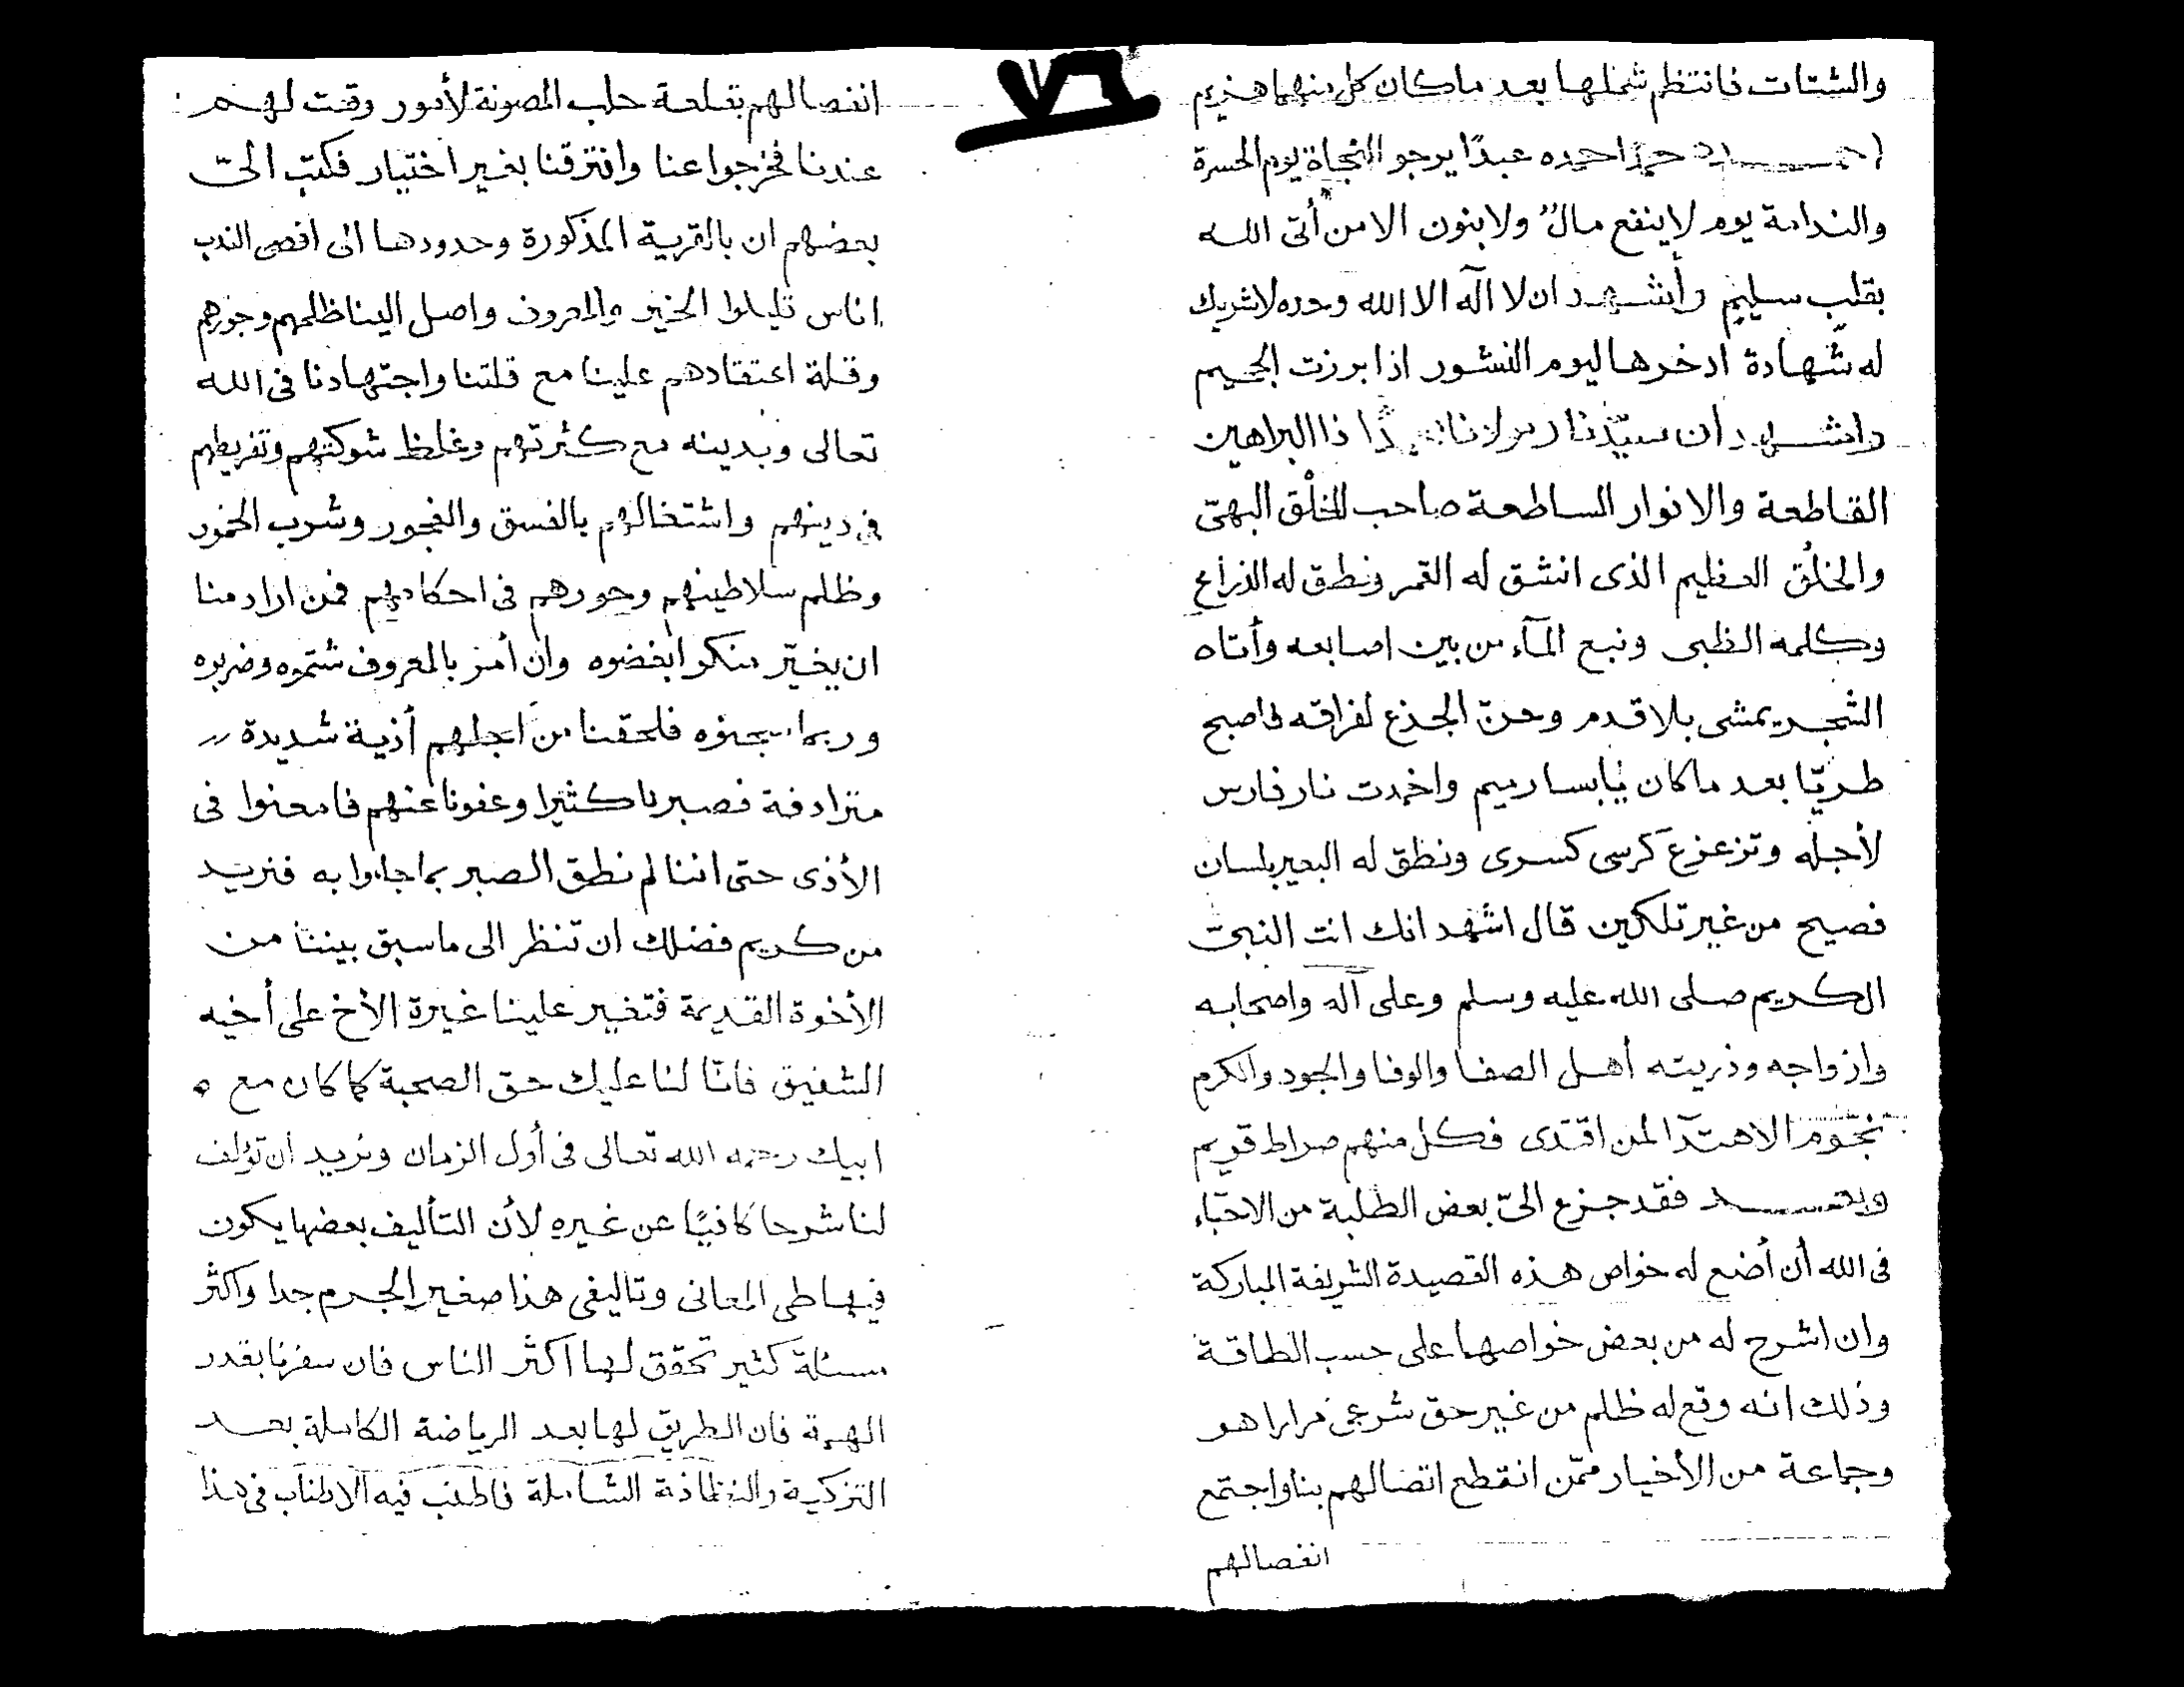 والشتات فانتظم شملها بعد ماكان كل منهما هذيم
احمده حمدا حمده عبدًا يرجو النجاة يوم الحسرة
والندامة يوم لاينفع مالٌ ولابنون الامن أتى الله
بقلب سليم وأشهد ان لا اله الا الله وحده لاشريك
له شهادة ادخرها ليوم النشور اذا برزت الجحيم
واشهد ان سيّدنا ومولانا ذا البراهين
القاطعة والانوار الساطعة صاحب الخلْق البهىّ
والخلُق العظيم الذى انشق له القمر ونطق له الذراع
وكلمه الظبى ونبع المآء من بين اصابعه وأتاه
الشجر يمشى بلا قدم وحنّ الجذع لفراقه فاصبح
طريّا بعد ماكان يابسا رميم واخمدت نار فارس
لأجله وتزعزع كرسى كسرى ونطق له البعير بلسان
فصيح من غير تلكين قال اشهد انك انت النبى
الكريم صلى الله عليه وسلم وعلى آله واصحابه
وازواجه وذريته أهل الصفا والوفا والجود والكرم
نجوم الاهتدآ لمن اقتدى فكل منهم صراط قويم
وبعد فقد جزع الىّ بعض الطلبة من الاحبّاء
فى الله أن أضع له خواص هذه القصيدة الشريفة المباركة
وان اشرح له من بعض خواصها على حسب الطاقة
وذلك انه وقع له ظلم من غير حق شرعى مرارا هو
وجماعة من الأخيار ممّن انقطع اتصالهم بنا واجتمع
انفصالهم
٧٦
انفصالهم بقلعة حلب المصونة لأمور وقت لهم
عندنا فخرجوا عنا وافترقنا بغير اختيار فكتب الىّ
بعضهم ان بالقرية المذكورة وحدودها الى اقصى الندب
اناس قليلوا الخير والمعروف واصل الينا ظلمهم وجورهم
وقلة اعتقادهم علينا مع قلتنا واجتهادنا فى الله
تعالى وبدينه مع كثرتهم وغلظ شوكتهم وتفريطهم
فى دينهم واشتغالهم بالفسق والفجور وشرب الخمور
وظلم سلاطينهم وجورهم فى احكامهم فمن اراد منا
ان يغيّر منكرا ابغضوه وان أمر بالمعروف شتموه وضربوه
وربما سجنوه فلحقنا من اجلهم أذية شديدة
مترادفة فصبرنا كثيرا وعفونا عنهم فامعنوا فى
الأذى حتى اننا لم نطق الصبر بما جاءوا به فنريد
من كريم فضلك ان تنظر الى ماسبق بيننا من
الأخوة القديمة فتغير علينا غيرة الأخ على أخيه
الشفيق فانّا لنا عليك حق الصحبة كما كان مع ه
ابيك رحمه الله تعالى فى أول الزمان ونريد أن تؤلف
لنا شرحا كافيًا عن غيره لأن التأليف بعضها يكون
فيها طى المعانى وتاليفى هذا صغير الجرم جدا واكثر
مسئلة كثير تحقق لها اكثر الناس فان سفرنا بقدر
الهمة فان الطريق لها بعد الرياضة الكاملة بعد
التزكية والنظافة الشاملة فاطنب فيه الاطناب فى هذا